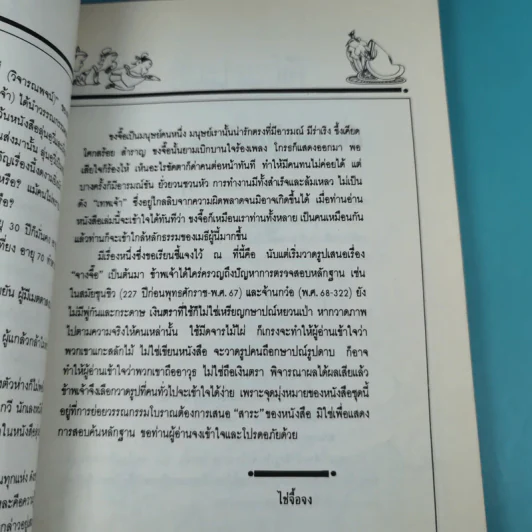 (วิจารณพจน์)
เจ้า) ได้นำวรรณกรรม
หรือ?
ยุ 30 ปีก็มั่นคง
ที่ยง อายุ 70
ผู้แกล้วกล้า
กวี นักเลง
ในหนังสือ
ทุกแห่ง ดัง
ขงจื๊อเป็นมนุษย์คนหนึ่ง มนุษย์เรานั้นน่ารักตรงที่มีอารมณ์ มีร่าเริง ขึ้งเคียด
โศกสร้อย สำราญ ขงจื๊อนั้นยามเบิกบานใจร้องเพลง โกรธก็แสดงออกมา พอ
เสียใจก็ร้องไห้ เห็นอะไรขัดตาก็ด่าคนต่อหน้าทันที ทำให้มีคนทนไม่ค่อยได้ แต่
บางครั้งก็มีอารมณ์ขัน ยั่วยวนชวนหัว การทำงานมีทั้งสำเร็จและล้มเหลว ไม่เป็น
ดัง "เทพเจ้า" ซึ่งอยู่ไกลลิบจากความผิดพลาดจนมิอาจเกิดขึ้นได้ เมื่อท่านอ่าน
หนังสือเล่มนี้จะเข้าใจได้ทันทีว่า ขงจื๊อก็เหมือนเราท่านทั้งหลาย เป็นคนเหมือนกัน
แล้วท่านก็จะเข้าใกล้หลักธรรมของเมธีผู้นี้มากขึ้น
มีเรื่องหนึ่งซึ่งขอเรียนชี้แจงไว้ ณ ที่นี้คือ นับแต่เริ่มวาดรูปเสนอเรื่อง
"จางจื๊อ" เป็นต้นมา ข้าพเจ้าได้ใคร่ครวญถึงปัญหาการตรวจสอบหลักฐาน เช่น
ในสมัยชุนชิว (227 ปีก่อนพุทธศักราช-พ.ศ. 67) และจ้านกว๋อ (พ.ศ. 68-322) ยัง
ไม่มีพู่กันและกระดาษ เงินตราที่ใช้ก็ไม่ใช่เหรียญกษาปณ์หยวนเป่า หากวาดภาพ
ไปตามความจริงให้คนเหล่านั้น ใช้มีดจารไม้ไผ่ ก็เกรงจะทำให้ผู้อ่านเข้าใจว่า
พวกเขาแกะสลักไม้ ไม่ใช่เขียนหนังสือ จะวาดรูปคนถือกษาปณ์รูปดาบ ก็อาจ
ทำให้ผู้อ่านเข้าใจว่าพวกเขาถืออาวุธ ไม่ใช่ถือเงินตรา พิจารณาผลได้ผลเสียแล้ว
ข้าพเจ้าจึงเลือกวาดรูปที่คนทั่วไปจะเข้าใจได้ง่าย เพราะจุดมุ่งหมายของหนังสือชุดนี้
อยู่ที่การย่อยวรรณกรรมโบราณต้องการเสนอ "สาระ" ของหนังสือ มิใช่เพื่อแสดง
การสอบค้นหลักฐาน ขอท่านผู้อ่านจงเข้าใจและโปรดอภัยด้วย
ไช่จื้อจง